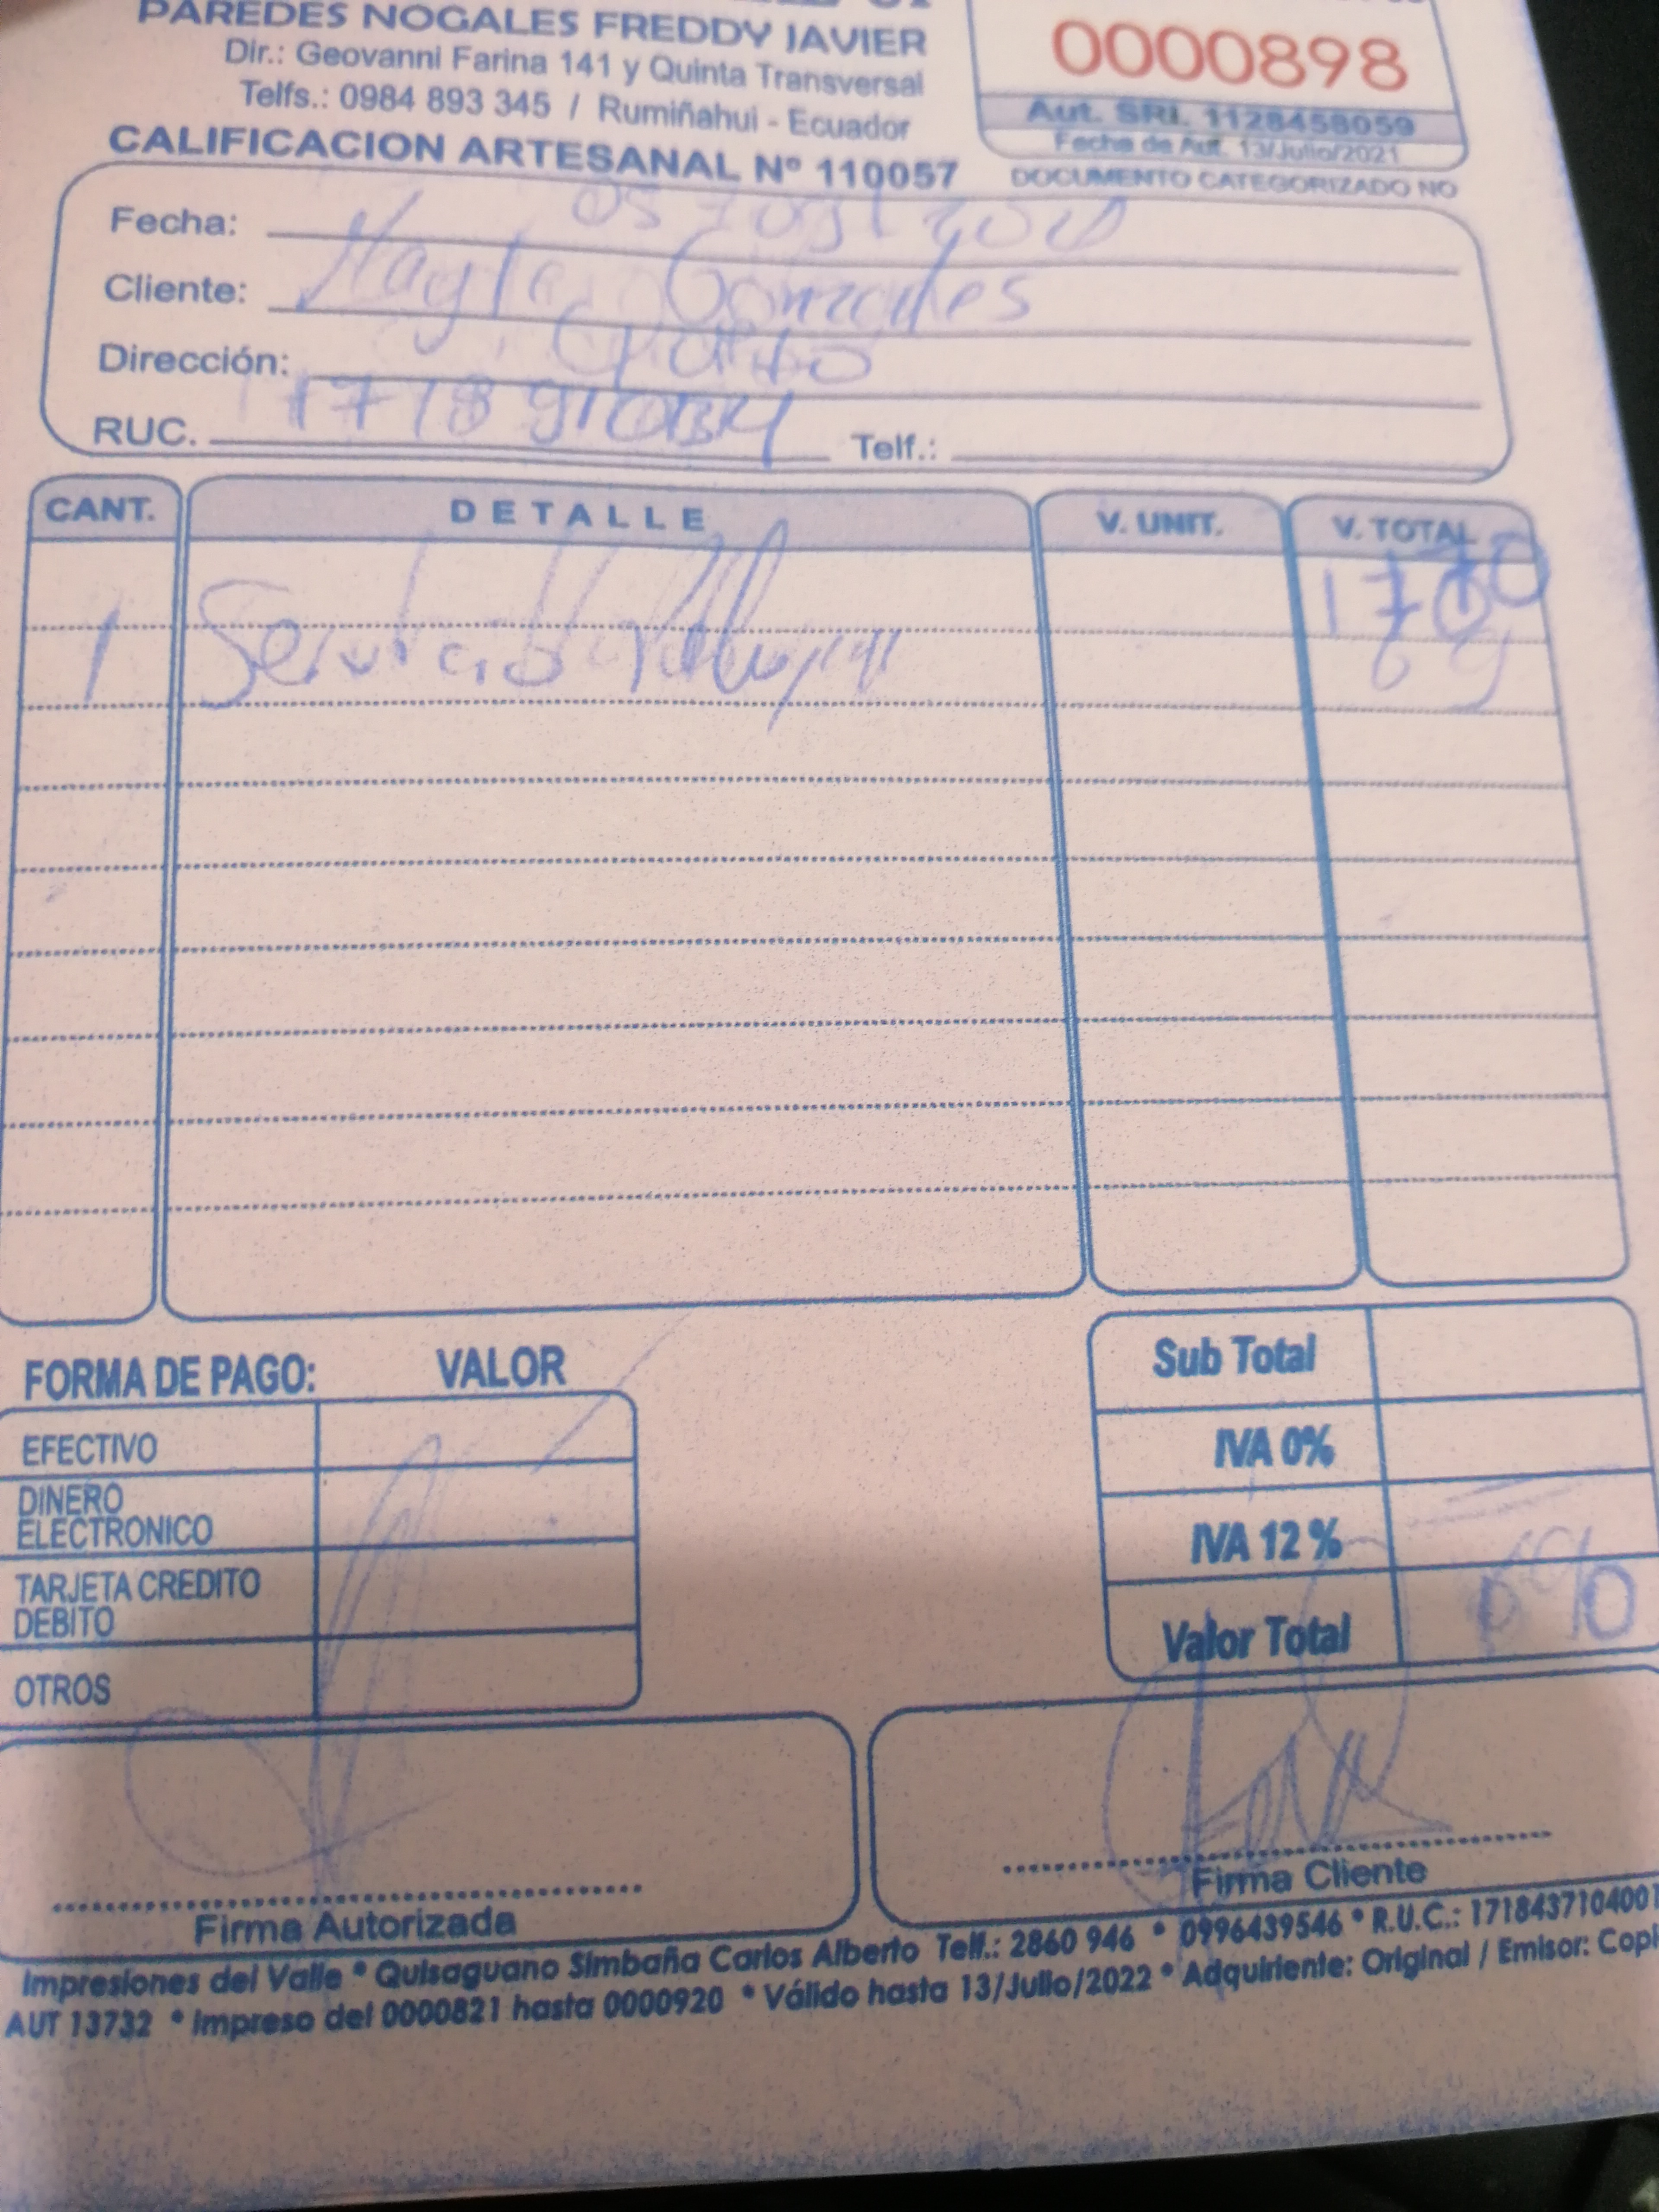 PAREDES NOGALES FREDDY JAVIER
Dir.: Geovanni Farina 141 y Quinta Transversal
Telfs.: 0984 893 345 / Rumiñahui - Ecuador
CALIFICACION ARTESANAL Nº 110057
0000898
Aut. SRI. 1128458059
Fecha de Aut. 13/Julio/2021
DOCUMENTO CATEGORIZADO NO
Fecha:
Cliente: Gonzales
Dirección: Quito
RUC. Telf.:
CANT. DETALLE V. UNIT. V. TOTAL
1 Servicio
FORMA DE PAGO: VALOR
EFECTIVO
DINERO ELECTRONICO
TARJETA CREDITO DEBITO
OTROS
Sub Total
IVA 0%
IVA 12 %
Valor Total
Firma Autorizada
Firma Cliente
Impresiones del Valle * Quisaguano Simbaña Carlos Alberto Telf.: 2860 946 * 0996439546 * R.U.C.: 1718437104001
AUT 13732 * Impreso del 0000821 hasta 0000920 * Válido hasta 13/Julio/2022 * Adquiriente: Original / Emisor: Copi